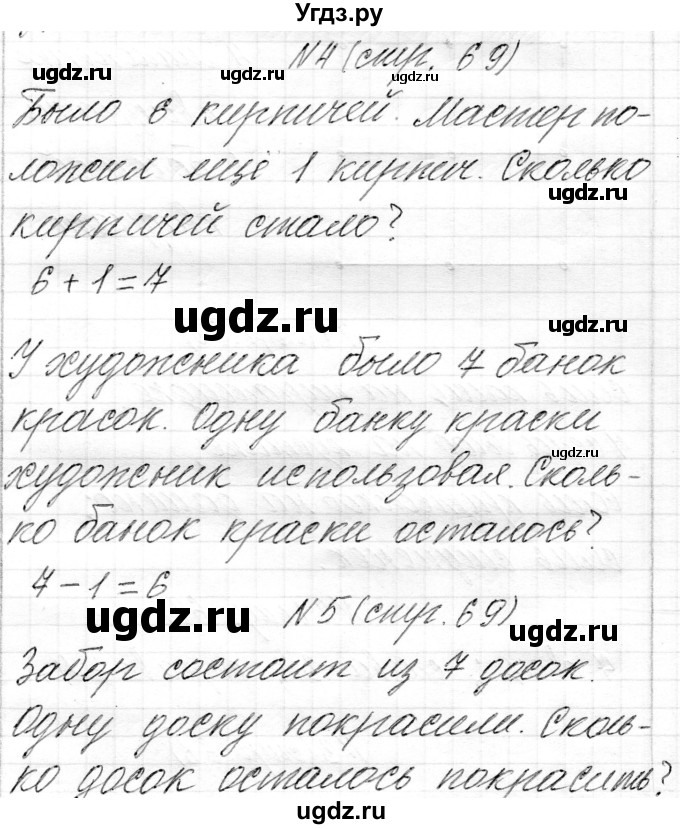 Угдз.ру
N4 (стр. 69)
Было 6 кирпичей. Мастер по-
ложил ещё 1 кирпич. Сколько
кирпичей стало?
6 + 1 = 7
У художника было 7 банок
красок. Одну банку краски
художник использовал. Сколь-
ко банок краски осталось?
7 - 1 = 6
N5 (стр. 69)
Забор состоит из 7 досок.
Одну доску покрасили. Сколь-
ко досок осталось покрасить?
ugdz.ru
ugdz.ru
ugdz.ru
ugdz.ru
ugdz.ru
ugdz.ru
ugdz.ru
ugdz.ru
ugdz.ru
ugdz.ru